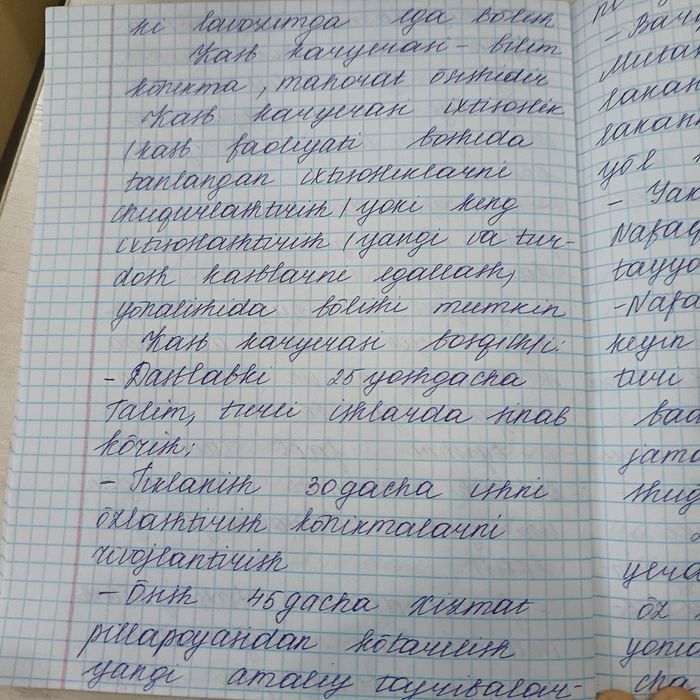 ki lavozimga ega bōlish
Kasb karyerasi - bilim
kōnikma, mahorat ōsishidir
Kasb karyerasi ixtisoslik
(kasb faoliyati boshida
tanlangan ixtisosliklarni
chuqurlashtirish) yoki keng
ixtisoslashtirish (yangi va tur-
dosh kasblarni egallash)
yōnalishida bōlishi mumkin
Kasb karyerasi bosqichi:
- Dastlabki 25 yoshgacha
Talim, turli ishlarda sinab
kōrish;
- Tiklanish 30gacha ishni
ōzlashtirish kōnikmalarni
rivojlantirish
- Ōsish 45gacha xizmat
pillapoyasidan kōtarilish
yangi amaliy tajribalar-
- Bar
Malak
lakan
lakan
yōl
- Yak
Nafaq
tayyo
- Nafa
keyin
turi
bad
jama
shuğ
yera
ōz
yonid
cha